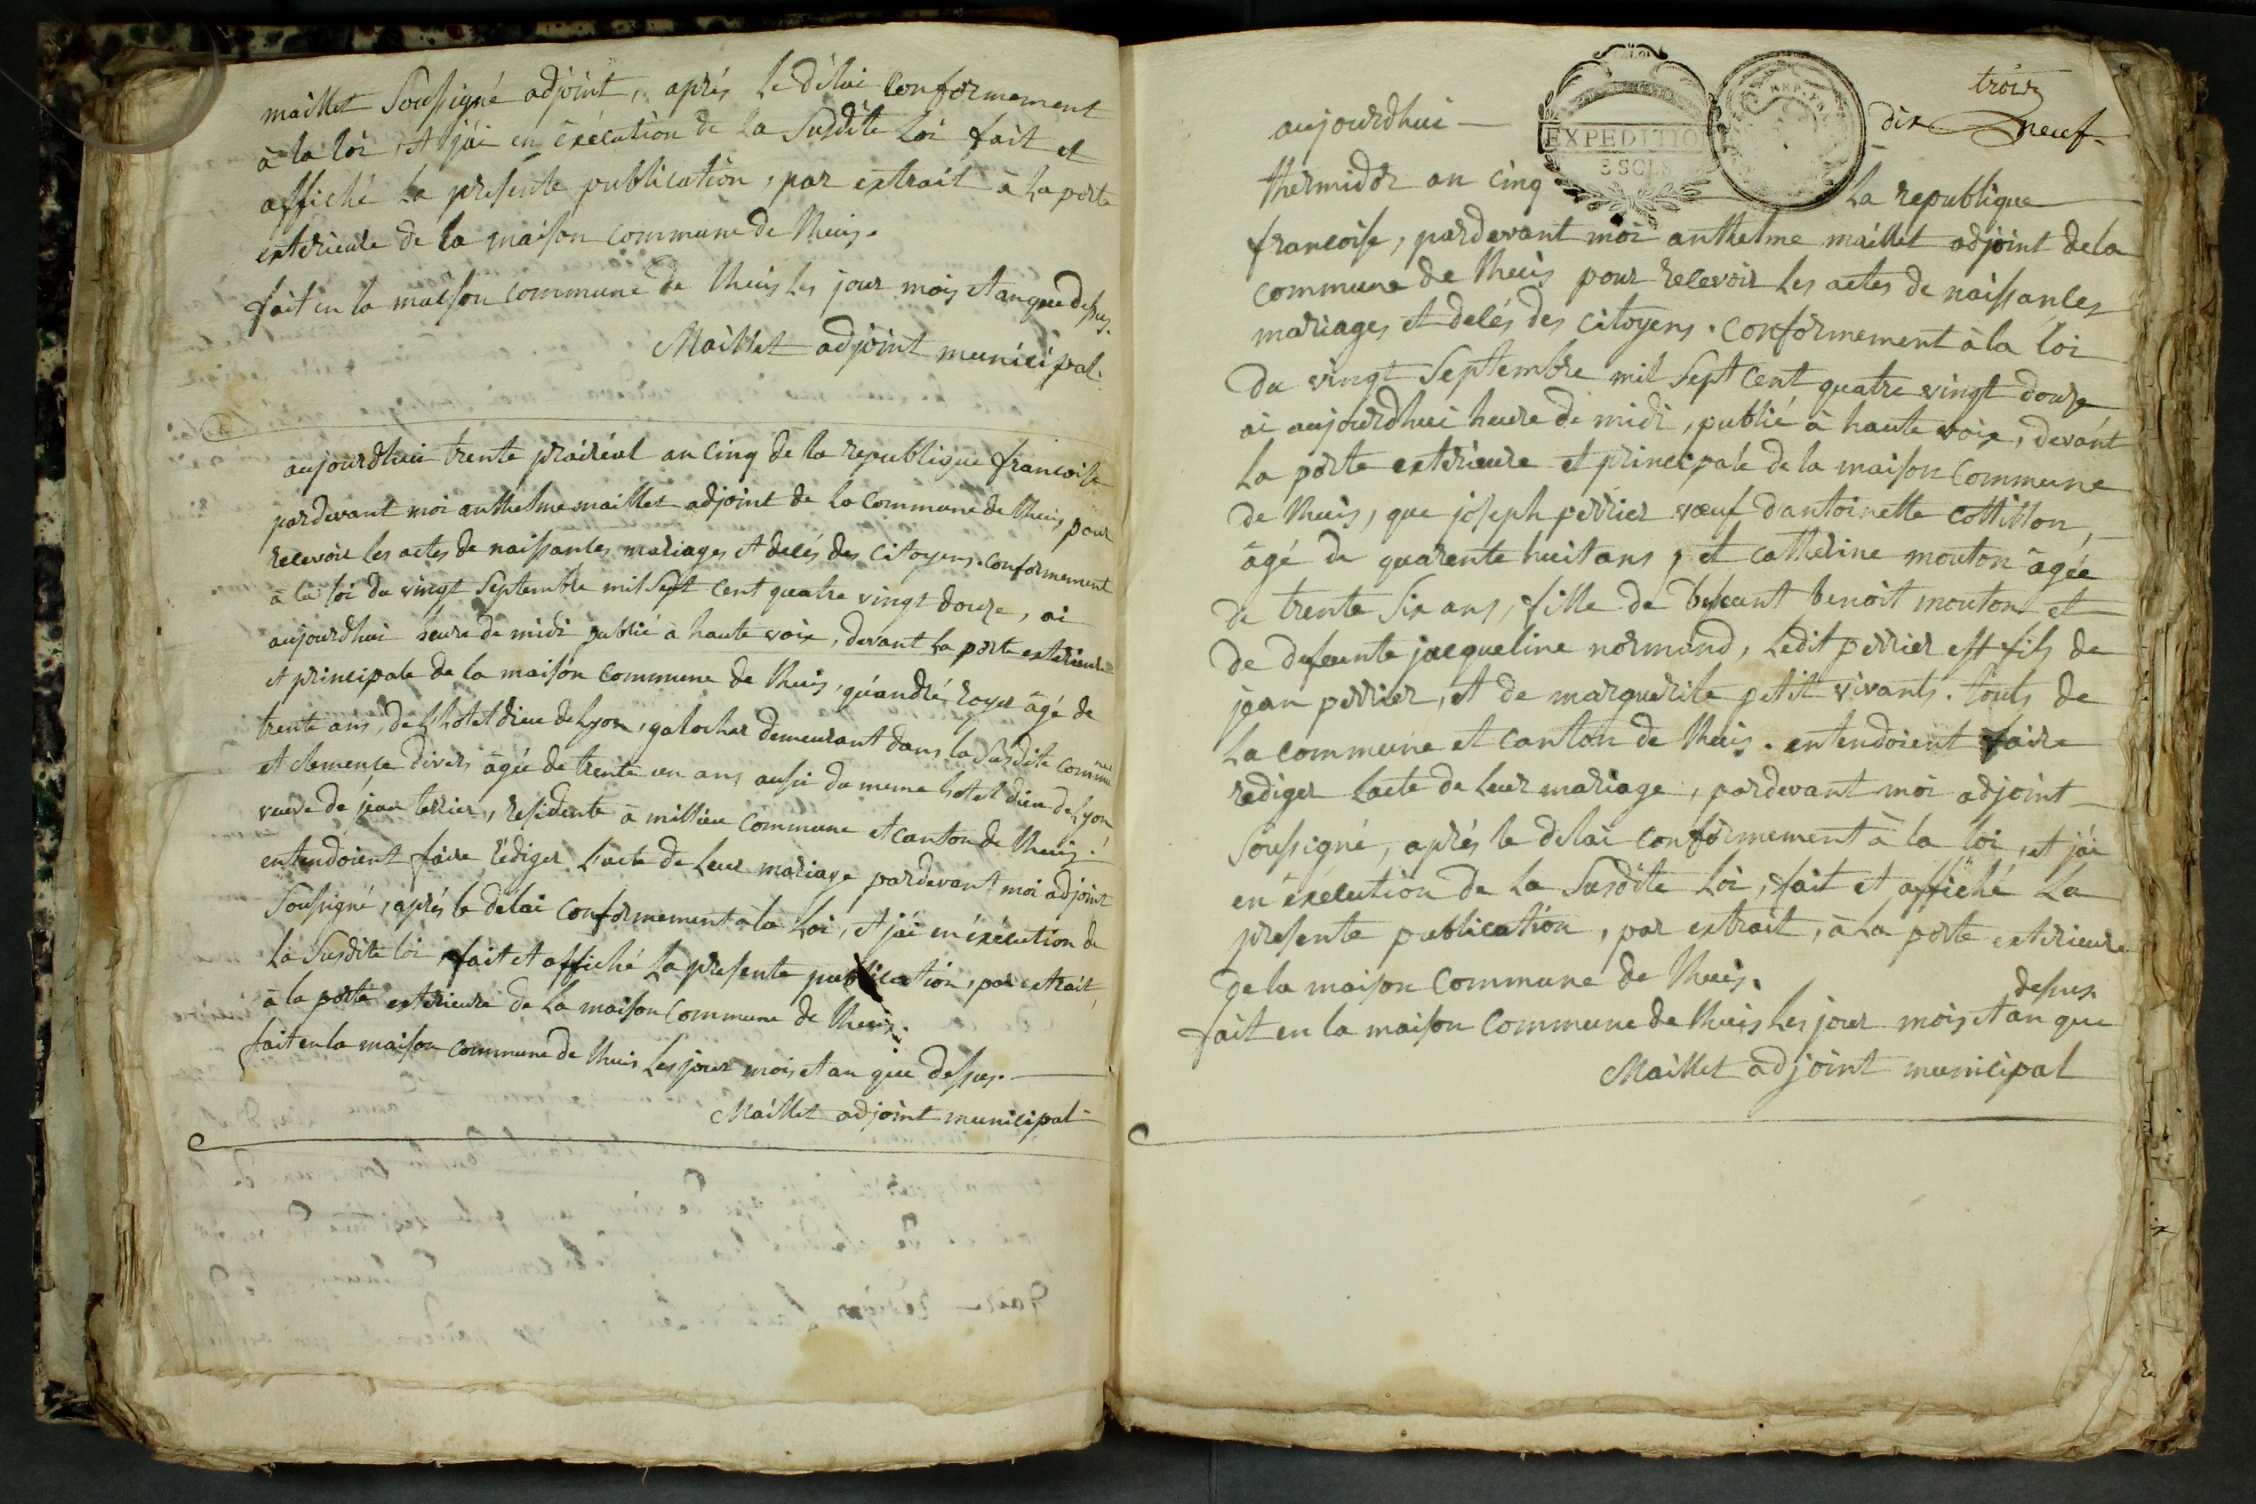 maillet Soussigné adjoint, après le délai conformement
à la loi, et j'ai en éxécution de la Susdite Loi fait et
affiché la presente publication, par extrait à la porte
exterieure de la maison commune de Rhuis.
fait en la maison commune de Rhuis les jour mois et an que dessus.
Maillet adjoint municipal.
aujourdhui trente prairéal an cinq de la republique francoise
pardevant moi anthelme maillet adjoint de la commune de Rhuis pour
recevoir les actes de naissances mariages et decés des citoyens. conformement
à la loi du vingt Septembre mil Sept cent quatre vingt douze, ai
aujourdhui heure de midi publié à haute voix, devant la porte exterieure
et principale de la maison commune de Rhuis, qu'andré royer âgé de
trente ans, de L'hotel dieu de Lyon, galocher demeurant dans la Susdite commune
et clemence divers âgée de trente un ans aussi du meme hotel dieu de Lyon
veuve de jean terrier, residente à millieu commune et canton de Rhuis.
entendoient faire rédiger L'acte de Leur mariage pardevant moi adjoint
Soussigné, après le delai conformement à la Loi, et j'ai en éxécution de
la Susdite loi, fait et affiché La presente publication, par extrait,
à la porte exterieure de La maison commune de Rhuis.
fait en la maison commune de Rhuis Les jour mois et an que dessus.
Maillet adjoint municipal
trois
dix neuf
EXPEDITION
aujourdhui
thermidor an cinq La republique
francoise, pardevant moi anthelme maillet adjoint de la
commune de Rhuis pour recevoir les actes de naissances
mariages et decés des citoyens. conformement à la loi
du vingt Septembre mil Sept cent quatre vingt douze
ai aujourdhui heure de midi, publié à haute voix, devant
la porte exterieure et principale de la maison commune
de Rhuis, que joseph perrier vœuf d'antoinette cottillon,
âgé de quarente huit ans, et catherine mouton âgée
de trente Six ans, fille de defeunt benoit mouton et
de defeunte jacqueline normand, Ledit perrier est fils de
jean perrier, et de marguerite petit vivants. touts de
La commune et canton de Rhuis. entendoient faire
rediger L'acte de Leur mariage, pardevant moi adjoint
Soussigné, après le delai conformement à la loi, et j'ai
en éxécution de La Susdite Loi, fait et affiché La
presente publication, par extrait, à La porte exterieure
de la maison commune de Rhuis.
dessus.
fait en la maison commune de Rhuis Les jour mois et an que
Maillet adjoint municipal